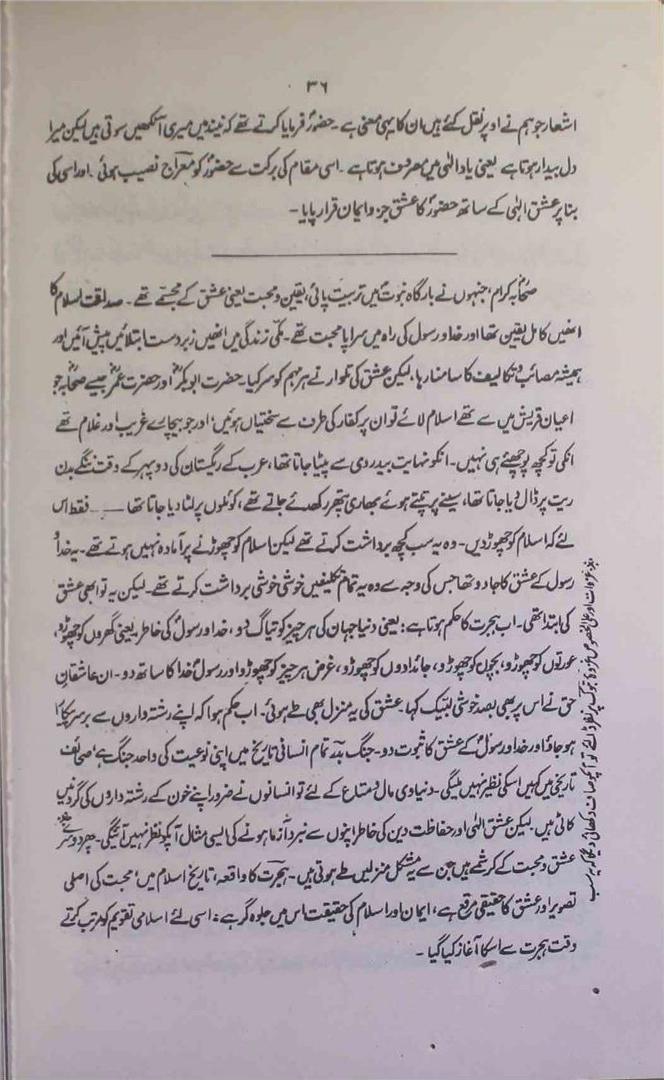 ۳۶
اشعار جو ہم نے اوپر نقل کئے ہیں، ان کا یہی معنی ہے۔ حضورؐ فرمایا کرتے تھے کہ نیند میں میری آنکھیں سوتی ہیں لیکن میرا
دل بیدار ہوتا ہے یعنی یاد الٰہی میں مصروف ہوتا ہے۔ اسی مقام کی برکت سے حضورؐ کو معراج نصیب ہوئی۔ اور اسی کی
بنا پر عشق الٰہی کے ساتھ حضورؐ کا عشق جزو ایمان قرار پایا۔
صحابہ کرامؓ، جنہوں نے بارگاہ نبوت میں تربیت پائی، یقین و محبت یعنی عشق کے مجسمے تھے۔ صداقت اسلام کا
انھیں کامل یقین تھا اور خدا و رسول کی راہ میں سراپا محبت تھے۔ مکی زندگی میں انھیں زبردست ابتلائیں پیش آئیں اور
ہمیشہ مصائب و تکالیف کا سامنا رہا، لیکن عشق کی تلوار نے ہر مہم کو سر کیا۔ حضرت ابوبکرؓ اور حضرت عمرؓ جیسے صحابہ جو
اعیان قریش میں سے تھے اسلام لائے تو ان پر کفار کی طرف سے سختیاں ہوئیں، اور جو بیچارے غریب اور غلام تھے
انکی تو کچھ پوچھئے ہی نہیں۔ انکو نہایت بیدردی سے پیٹا جاتا تھا، عرب کے ریگستان کی دوپہر کے وقت ننگے بدن
ریت پر ڈال دیا جاتا تھا، سینے پر تپتے ہوئے بھاری پتھر رکھدئے جاتے تھے، کوئلوں پر لٹا دیا جاتا تھا ـــــ فقط اس
لئے کہ اسلام کو چھوڑ دیں۔ وہ یہ سب کچھ برداشت کرتے تھے لیکن اسلام کو چھوڑنے پر آمادہ نہیں ہوتے تھے۔ یہ خدا و
رسول کے عشق کا جادو تھا جس کی وجہ سے وہ یہ تمام تکلیفیں خوشی خوشی برداشت کرتے تھے۔ لیکن یہ تو ابھی عشق
کی ابتدا تھی۔ اب ہجرت کا حکم ہوتا ہے: یعنی دنیا جہان کی ہر چیز کو تیاگ دو، خدا و رسولؐ کی خاطر یعنی گھروں کو چھوڑو،
عورتوں کو چھوڑو، بچوں کو چھوڑو، جائدادوں کو چھوڑو، غرض ہر چیز کو چھوڑو اور رسولؐ خدا کا ساتھ دو۔ ان عاشقانِ
حق نے اس پر بھی بصد خوشی لبیک کہا۔ عشق کی یہ منزل بھی طے ہوئی۔ اب حکم ہوا کہ اپنے رشتہ داروں سے برسر پیکار
ہو جاؤ اور خدا و رسولؐ کے عشق کا ثبوت دو۔ جنگ بدر تمام انسانی تاریخ میں اپنی نوعیت کی واحد جنگ ہے، صحائف
تاریخی میں کہیں اسکی نظیر نہیں ملیگی۔ دنیاوی مال و متاع کے لئے تو انسانوں نے ضرور اپنے خون کے رشتہ داروں کی گردنیں
کاٹی ہیں لیکن عشق الٰہی اور حفاظت دین کی خاطر اپنوں سے نبرد آزما ہونے کی ایسی مثال آپکو نظر نہیں آئیگی۔ پھر دوسرے
عشق و محبت کے کرشمے ہیں جن سے یہ مشکل منزلیں طے ہوتی ہیں۔ ہجرت کا واقعہ، تاریخ اسلام میں، محبت کی اصلی
تصویر اور عشق کا حقیقی مرقع ہے، ایمان اور اسلام کی حقیقت اس میں جلوہ گر ہے: اسی لئے اسلامی تقویم کو مرتب کرتے
وقت ہجرت سے اسکا آغاز کیا گیا۔
غزوات اور علی الخصوص غزوۂ تبوک پر نظر ڈالئے تو آپکو صاف دکھائی دیگا کہ یہ سب